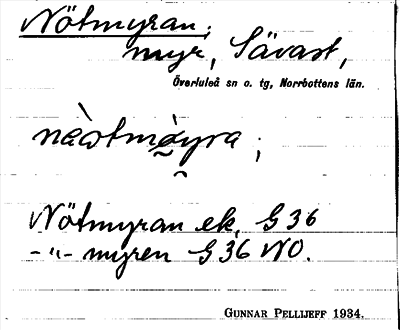 Nötmyran;
myr, Sävast,
Överluleå sn o. tg, Norrbottens län.
Nötmyran ek. G 36
-"- myren G 36 NO.
GUNNAR PELLIJEFF 1934.